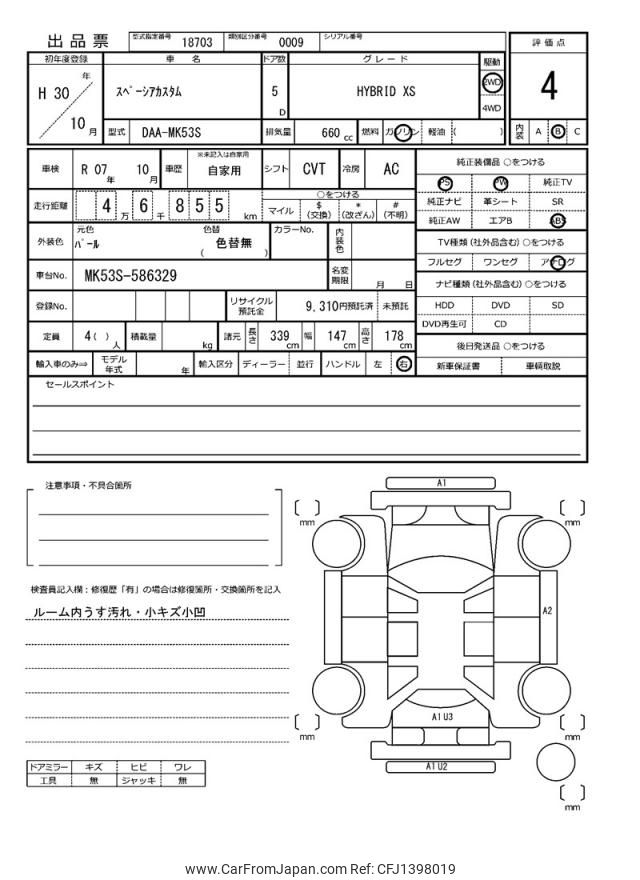 出品票
型式指定番号 18703 類別区分番号 0009 シリアル番号
初年度登録 車名 ドア数 グレード 駆動 評価点
H 30 年 10 月
スペーシアカスタム
5 D
HYBRID XS
2WD
4WD
4
型式 DAA-MK53S 排気量 660 cc 燃料 ガソリン 軽油 ( )
内装 A B C
車検 R 07 年 10 月 車歴 ※未記入は自家用 自家用 シフト CVT 冷房 AC
走行距離 4 万 6 千 8 5 5 km
○をつける
マイル $ (交換) * (改ざん) # (不明)
外装色 元色 パール 色替 色替無 ( ) カラーNo. 内装色
車台No. MK53S-586329 名変期限 月 日
登録No. リサイクル預託金 9,310円預託済 未預託
定員 4( ) 人 積載量 kg 諸元 長さ 339 cm 幅 147 cm 高さ 178 cm
輸入車のみ⇒ モデル年式 年 輸入区分 ディーラー 並行 ハンドル 左 右
純正装備品 ○をつける
PS PW 純正TV
純正ナビ 革シート SR
純正AW エアB ABS
TV種類(社外品含む)○をつける
フルセグ ワンセグ アナログ
ナビ種類(社外品含む)○をつける
HDD DVD SD
DVD再生可 CD
後日発送品 ○をつける
新車保証書 車輌取説
セールスポイント
注意事項・不具合箇所
検査員記入欄:修復歴「有」の場合は修復箇所・交換箇所を記入
ルーム内うす汚れ・小キズ小凹
ドアミラー キズ ヒビ ワレ
工具 無 ジャッキ 無
A1
mm
mm
A2
A1U3
mm
mm
A1U2
mm
www.CarFromJapan.com Ref: CFJ1398019